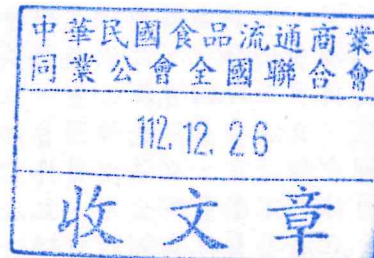 中華民國食品流通商業
同業公會全國聯合會
112.12.26
收文章